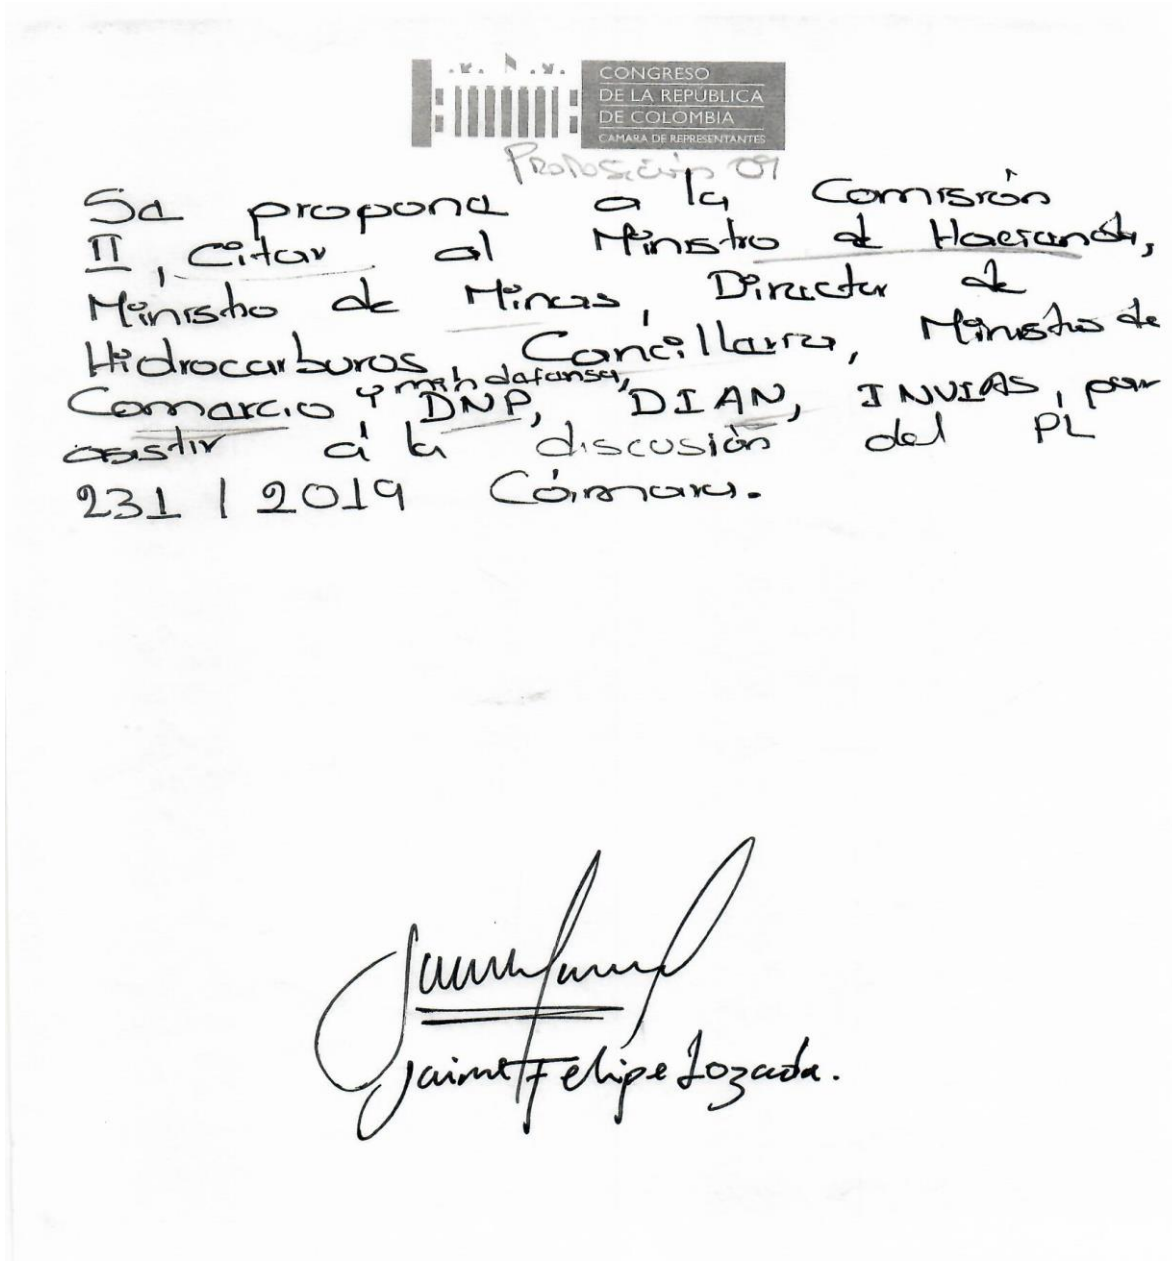 CONGRESO
DE LA REPÚBLICA
DE COLOMBIA
CAMARA DE REPRESENTANTES
Proposición 09
Se propone a la Comisión
II, Citar al Ministro de Hacienda,
Ministro de Minas, Director de
Hidrocarburos, Cancillería, Ministro de
y min defensa,
Comercio, DNP, DIAN, INVIAS, para
asistir a la discusión del PL
231 | 2019 Cámara.
Jaime Felipe Lozada.